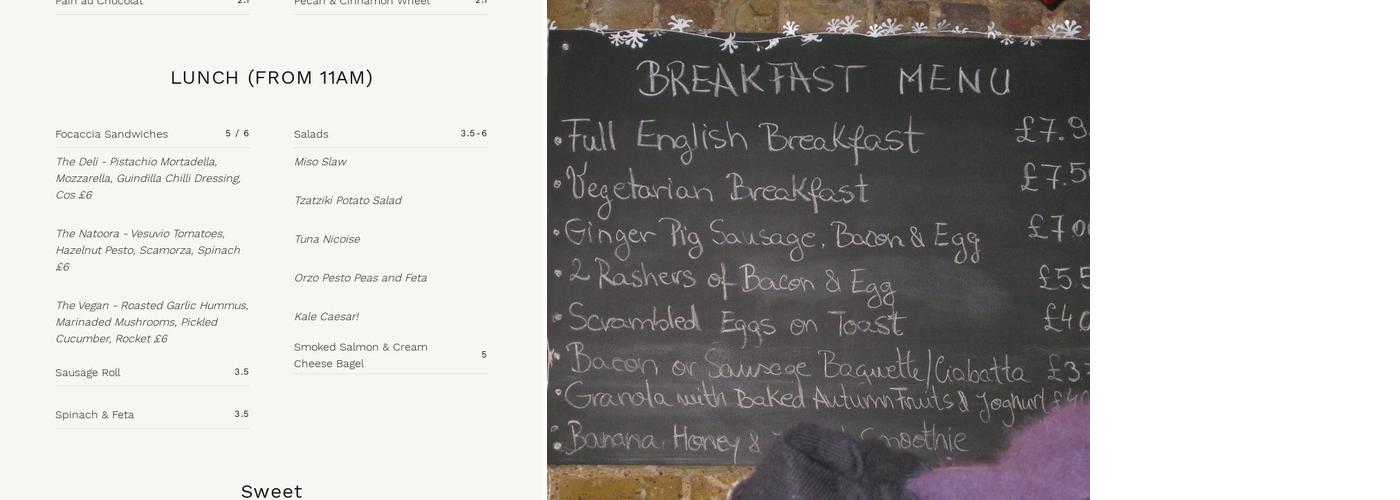 Pain au Chocolat 2.1
Pecan & Cinnamon Wheel 2.1
LUNCH (FROM 11AM)
Focaccia Sandwiches 5 / 6
The Deli - Pistachio Mortadella,
Mozzarella, Guindilla Chilli Dressing,
Cos £6
The Natoora - Vesuvio Tomatoes,
Hazelnut Pesto, Scamorza, Spinach
£6
The Vegan - Roasted Garlic Hummus,
Marinaded Mushrooms, Pickled
Cucumber, Rocket £6
Sausage Roll 3.5
Spinach & Feta 3.5
Salads 3.5-6
Miso Slaw
Tzatziki Potato Salad
Tuna Nicoise
Orzo Pesto Peas and Feta
Kale Caesar!
Smoked Salmon & Cream
Cheese Bagel 5
Sweet
BREAKFAST MENU
Full English Breakfast £7.9
Vegetarian Breakfast £7.5
Ginger Pig Sausage, Bacon & Egg £7.0
2 Rashers of Bacon & Egg £5 5
Scrambled Eggs on Toast £4
Bacon or Sausage Baguette/Ciabatta £3
Granola with Baked Autumn Fruits & Joghurt £4
Banana Honey & Smoothie